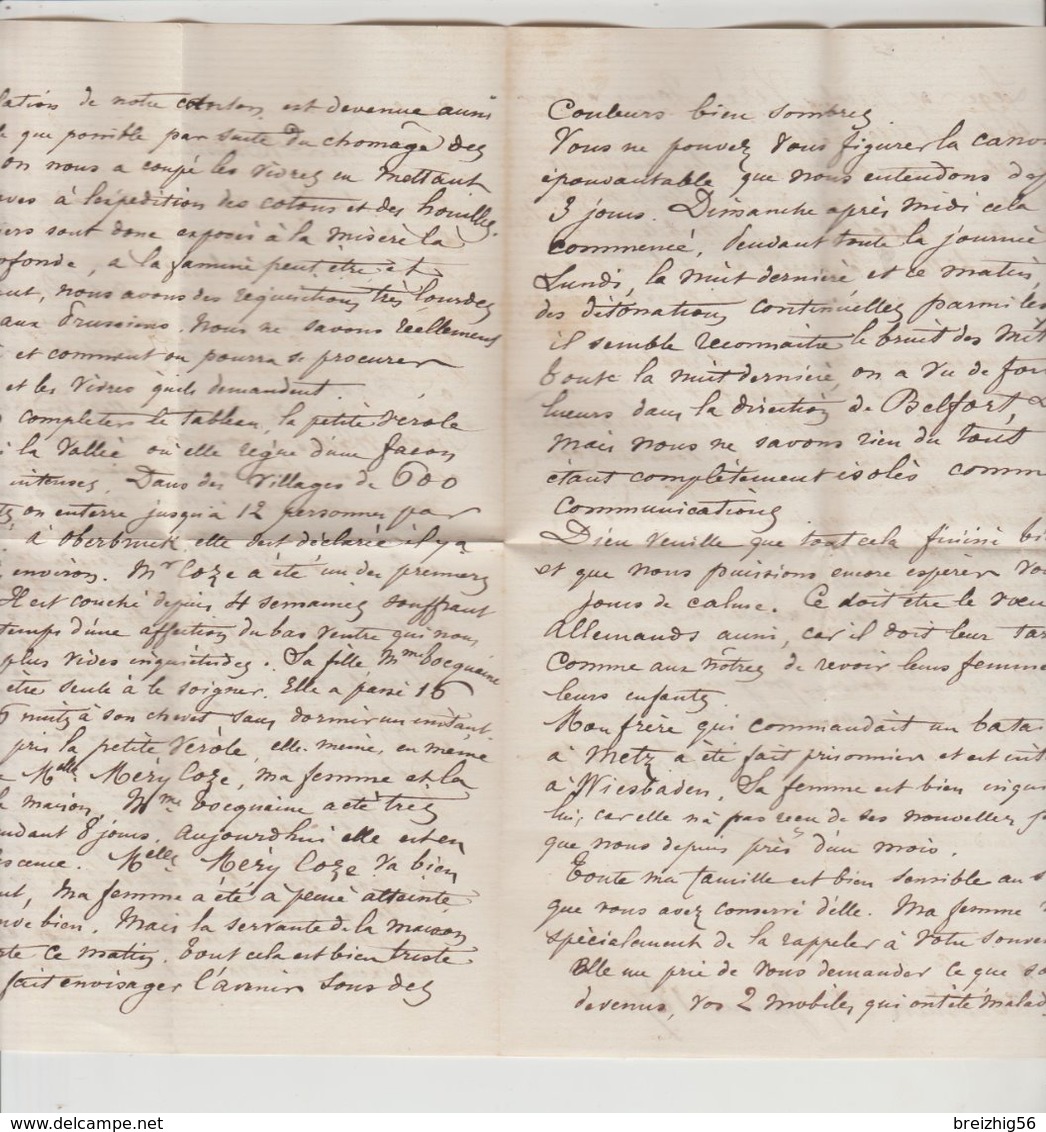 lation de notre canton est devenue aussi
que possible par suite du chomage des
on nous a coupé les vivres en mettant
ves à l'expédition des cotons et des houilles.
iers sont donc exposés à la misère la
fonde, à la famine peut être et
ut, nous avons des requisitions très lourdes
aux Prussiens. Nous ne savons réellement
et comment on pourra se procurer
et les vivres qu'ils demandent.
completer le tableau, la petite vérole
la vallée où elle règne d'une façon
intense. Dans des villages de 600
on enterre jusqu'à 12 personnes par
à Oberbruck elle s'est déclarée il y a
environ. Mr Coze a été un des premiers
Il est couché depuis 4 semaines souffrant
temps d'une affection du bas ventre qui nous
plus vives inquiétudes. Sa fille Mme Tocquaine
être seule à le soigner. Elle a passé 16
6 nuits à son chevet sans dormir un instant.
pris la petite vérole, elle-même, en même
Melle Méry Coze, ma femme et la
maison. Mme Tocquaine a été très
ndant 8 jours. Aujourd'hui elle est en
escence. Melle Méry Coze va bien
nt, ma femme a été à peine atteinte
bien. Mais la servante de la maison
te ce matin. Tout cela est bien triste
fait envisager l'avenir sous des
Couleurs bien sombres.
Vous ne pouvez vous figurer la canon
épouvantable que nous entendons dep
3 jours. Dimanche après midi cela
commencé, Pendant toute la journée
Lundi, la nuit dernière et ce matin,
des détonations continuelles parmi les
il semble reconnaître le bruit des mit
Toute la nuit dernière, on a vu de for
lueurs dans la direction de Belfort,
mais nous ne savons rien du tout
étant complètement isolés comm
communications.
Dieu veuille que tout cela finisse bi
et que nous puissions encore espérer vo
jours de calme. Ce doit être le vœu
Allemands aussi, car il doit leur tar
comme aux nôtres de revoir leurs femme
leurs enfants.
Mon frère qui commandait un bata
à Metz a été fait prisonnier et est int
à Wiesbaden. Sa femme est bien inqui
lui, car elle n'a pas reçu de ses nouvelles
que nous depuis près d'un mois.
Toute ma famille est bien sensible au s
que vous avez conservé d'elle. Ma femme
spécialement de la rappeler à votre souve
Elle me prie de vous demander ce que so
devenus, vos 2 mobiles qui ont été malad
breizhig56